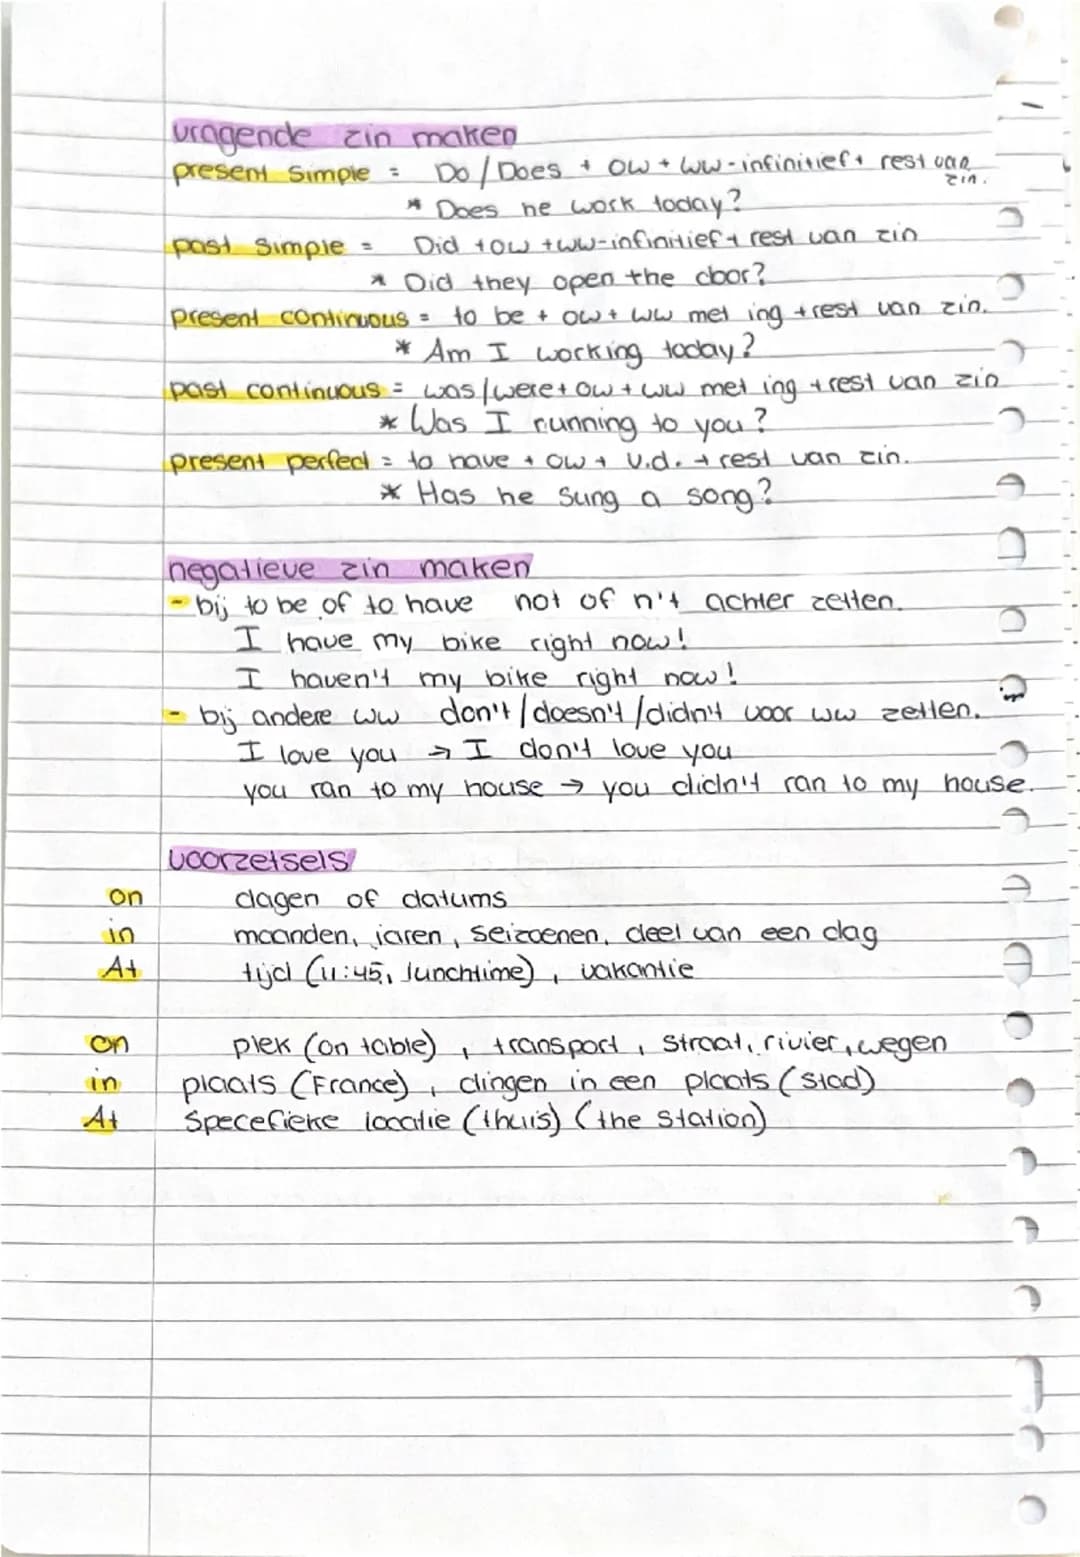 vragende zin maken
present simple = Do / Does + ow + ww-infinitief + rest van zin.
* Does he work today?
past simple = Did + ow + ww-infinitief + rest van zin
* Did they open the door?
present continuous = to be + ow + ww met ing + rest van zin.
* Am I working today?
past continuous = was/were + ow + ww met ing + rest van zin
* Was I running to you?
present perfect = to have + ow + v.d. + rest van zin.
* Has he sung a song?
negatieve zin maken
- bij to be of to have not of n't achter zetten.
I have my bike right now!
I haven't my bike right now!
- bij andere ww don't / doesn't / didn't voor ww zetten.
I love you → I don't love you
you ran to my house → you didn't ran to my house.
voorzetsels
on dagen of datums
in maanden, jaren, seizoenen, deel van een dag
At tijd (11:45, lunchtime), vakantie
on plek (on table), transport, straat, rivier, wegen
in plaats (France), dingen in een plaats (stad)
At specefieke locatie (thuis) (the station)